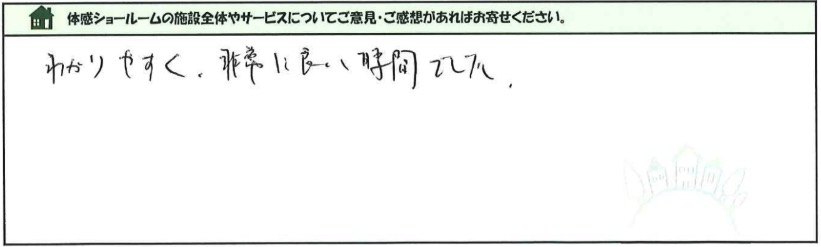 体感ショールームの施設全体やサービスについてご意見・ご感想があればお寄せください。
わかりやすく、非常に良い時間でした。